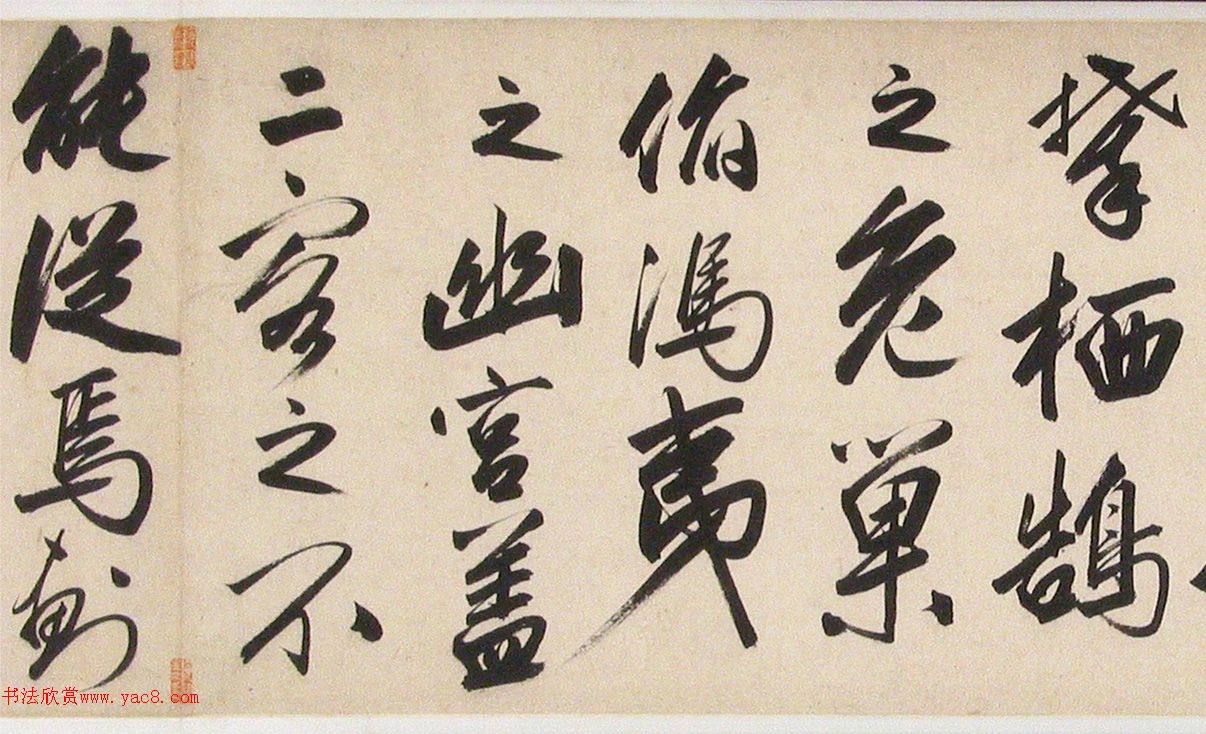 攀栖鵠
之危巢
俯馮夷
之幽宮盖
二客之不
能從焉劃
书法欣赏www.yac8.com